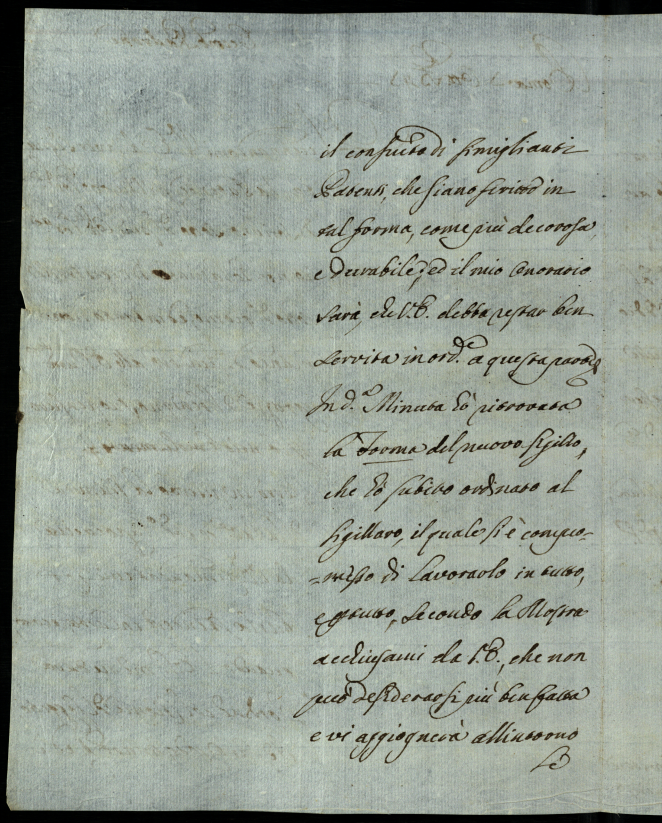 il consueto di simiglianti
Patenti, che siano scritte in
tal forma, come più decorosa,
e durabile; ed il mio Onorario
sarà, che V.E. debba restar ben
servita in ord.e a questa parte.
In d.a Minuta hò ritrovata
la Forma del nuovo sigillo,
che hò subito ordinato al
sigillaro, il quale si è compro=
=messo di lavorarlo in tutto,
e p tutto, secondo la Mostra
acchiusami da V.E., che non
può desiderarsi più ben fatta
e vi aggiognerà all'intorno